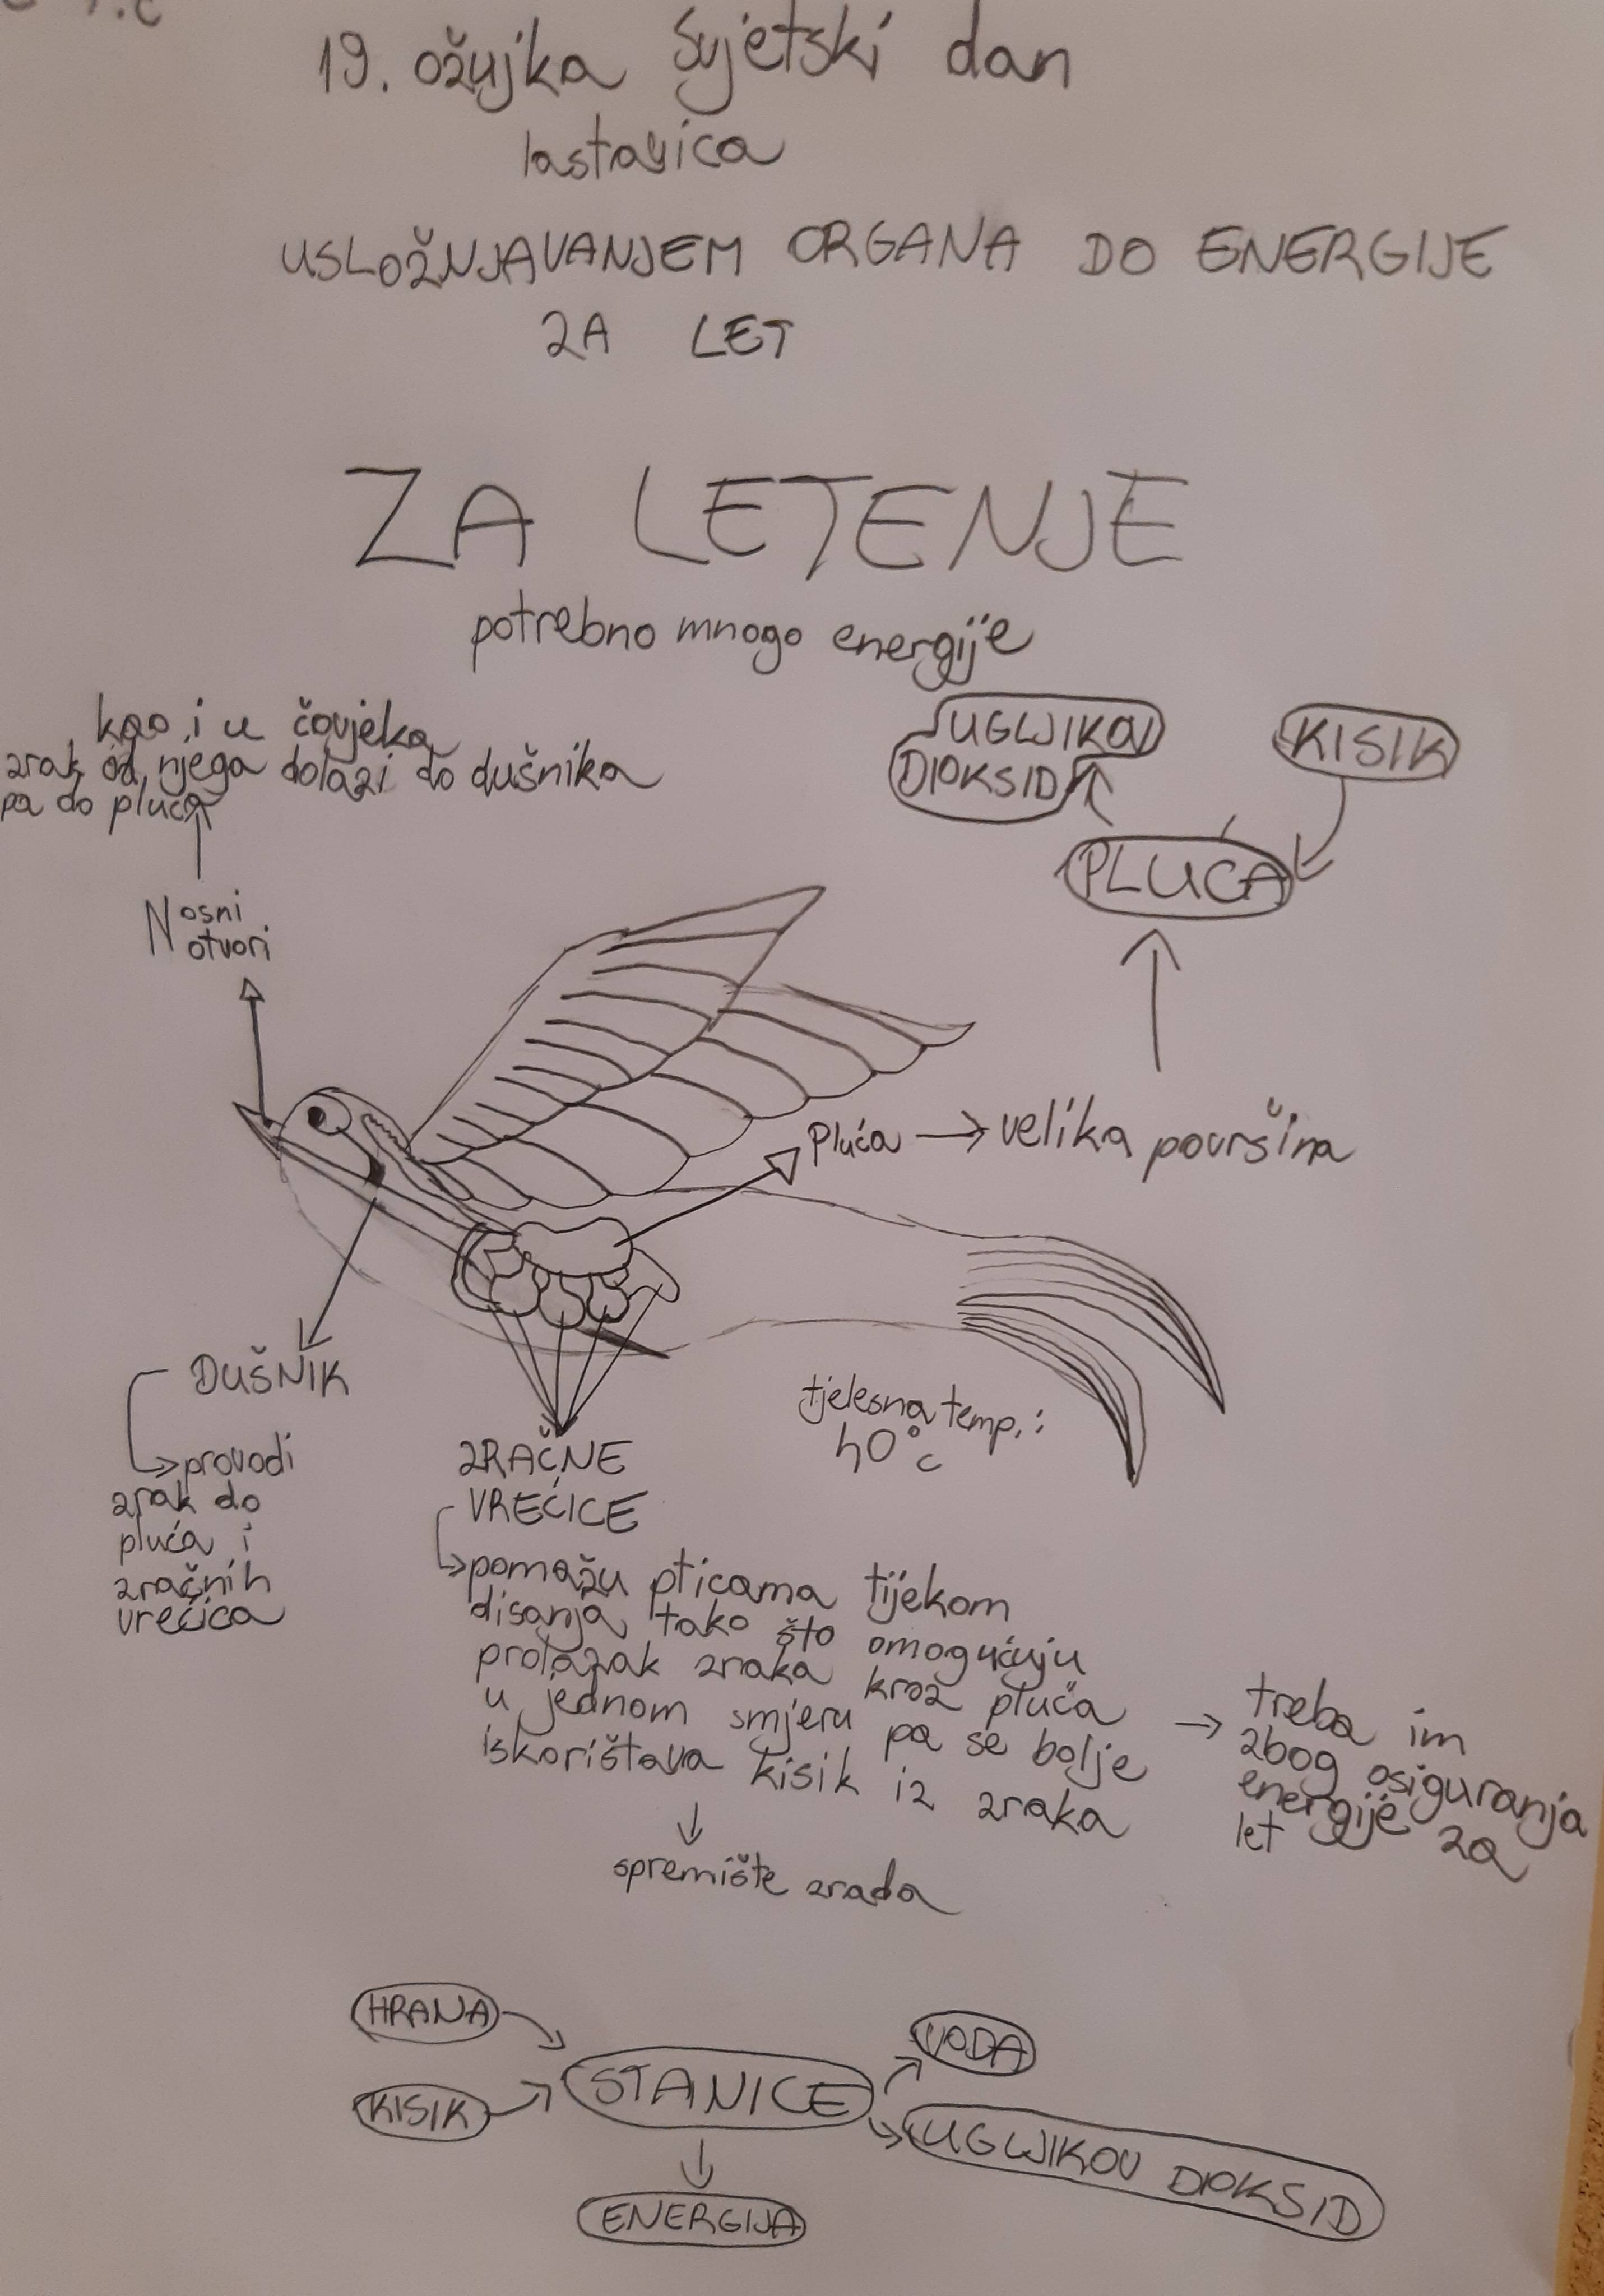 19. ožujka Svjetski dan
lastavica
USLOŽNJAVANJEM ORGANA DO ENERGIJE
ZA LET
ZA LETENJE
potrebno mnogo energije
kao i u čovjeka
zrak od njega dolazi do dušnika
pa do pluća
Nosni
otvori
UGLJIKOV
DIOKSID
KISIK
PLUĆA
Pluća → velika površina
DUŠNIK
provodi
zrak do
pluća i
zračnih
vrećica
ZRAČNE
VREĆICE
pomažu pticama tijekom
disanja tako što omogućuju
prolazak zraka kroz pluća
u jednom smjeru pa se bolje
iskorištava kisik iz zraka
→ treba im
zbog osiguranja
energije za
let
spremište zrada
tjelesna temp. :
40°C
HRANA
KISIK
STANICE
VODA
UGLJIKOV DIOKSID
ENERGIJA